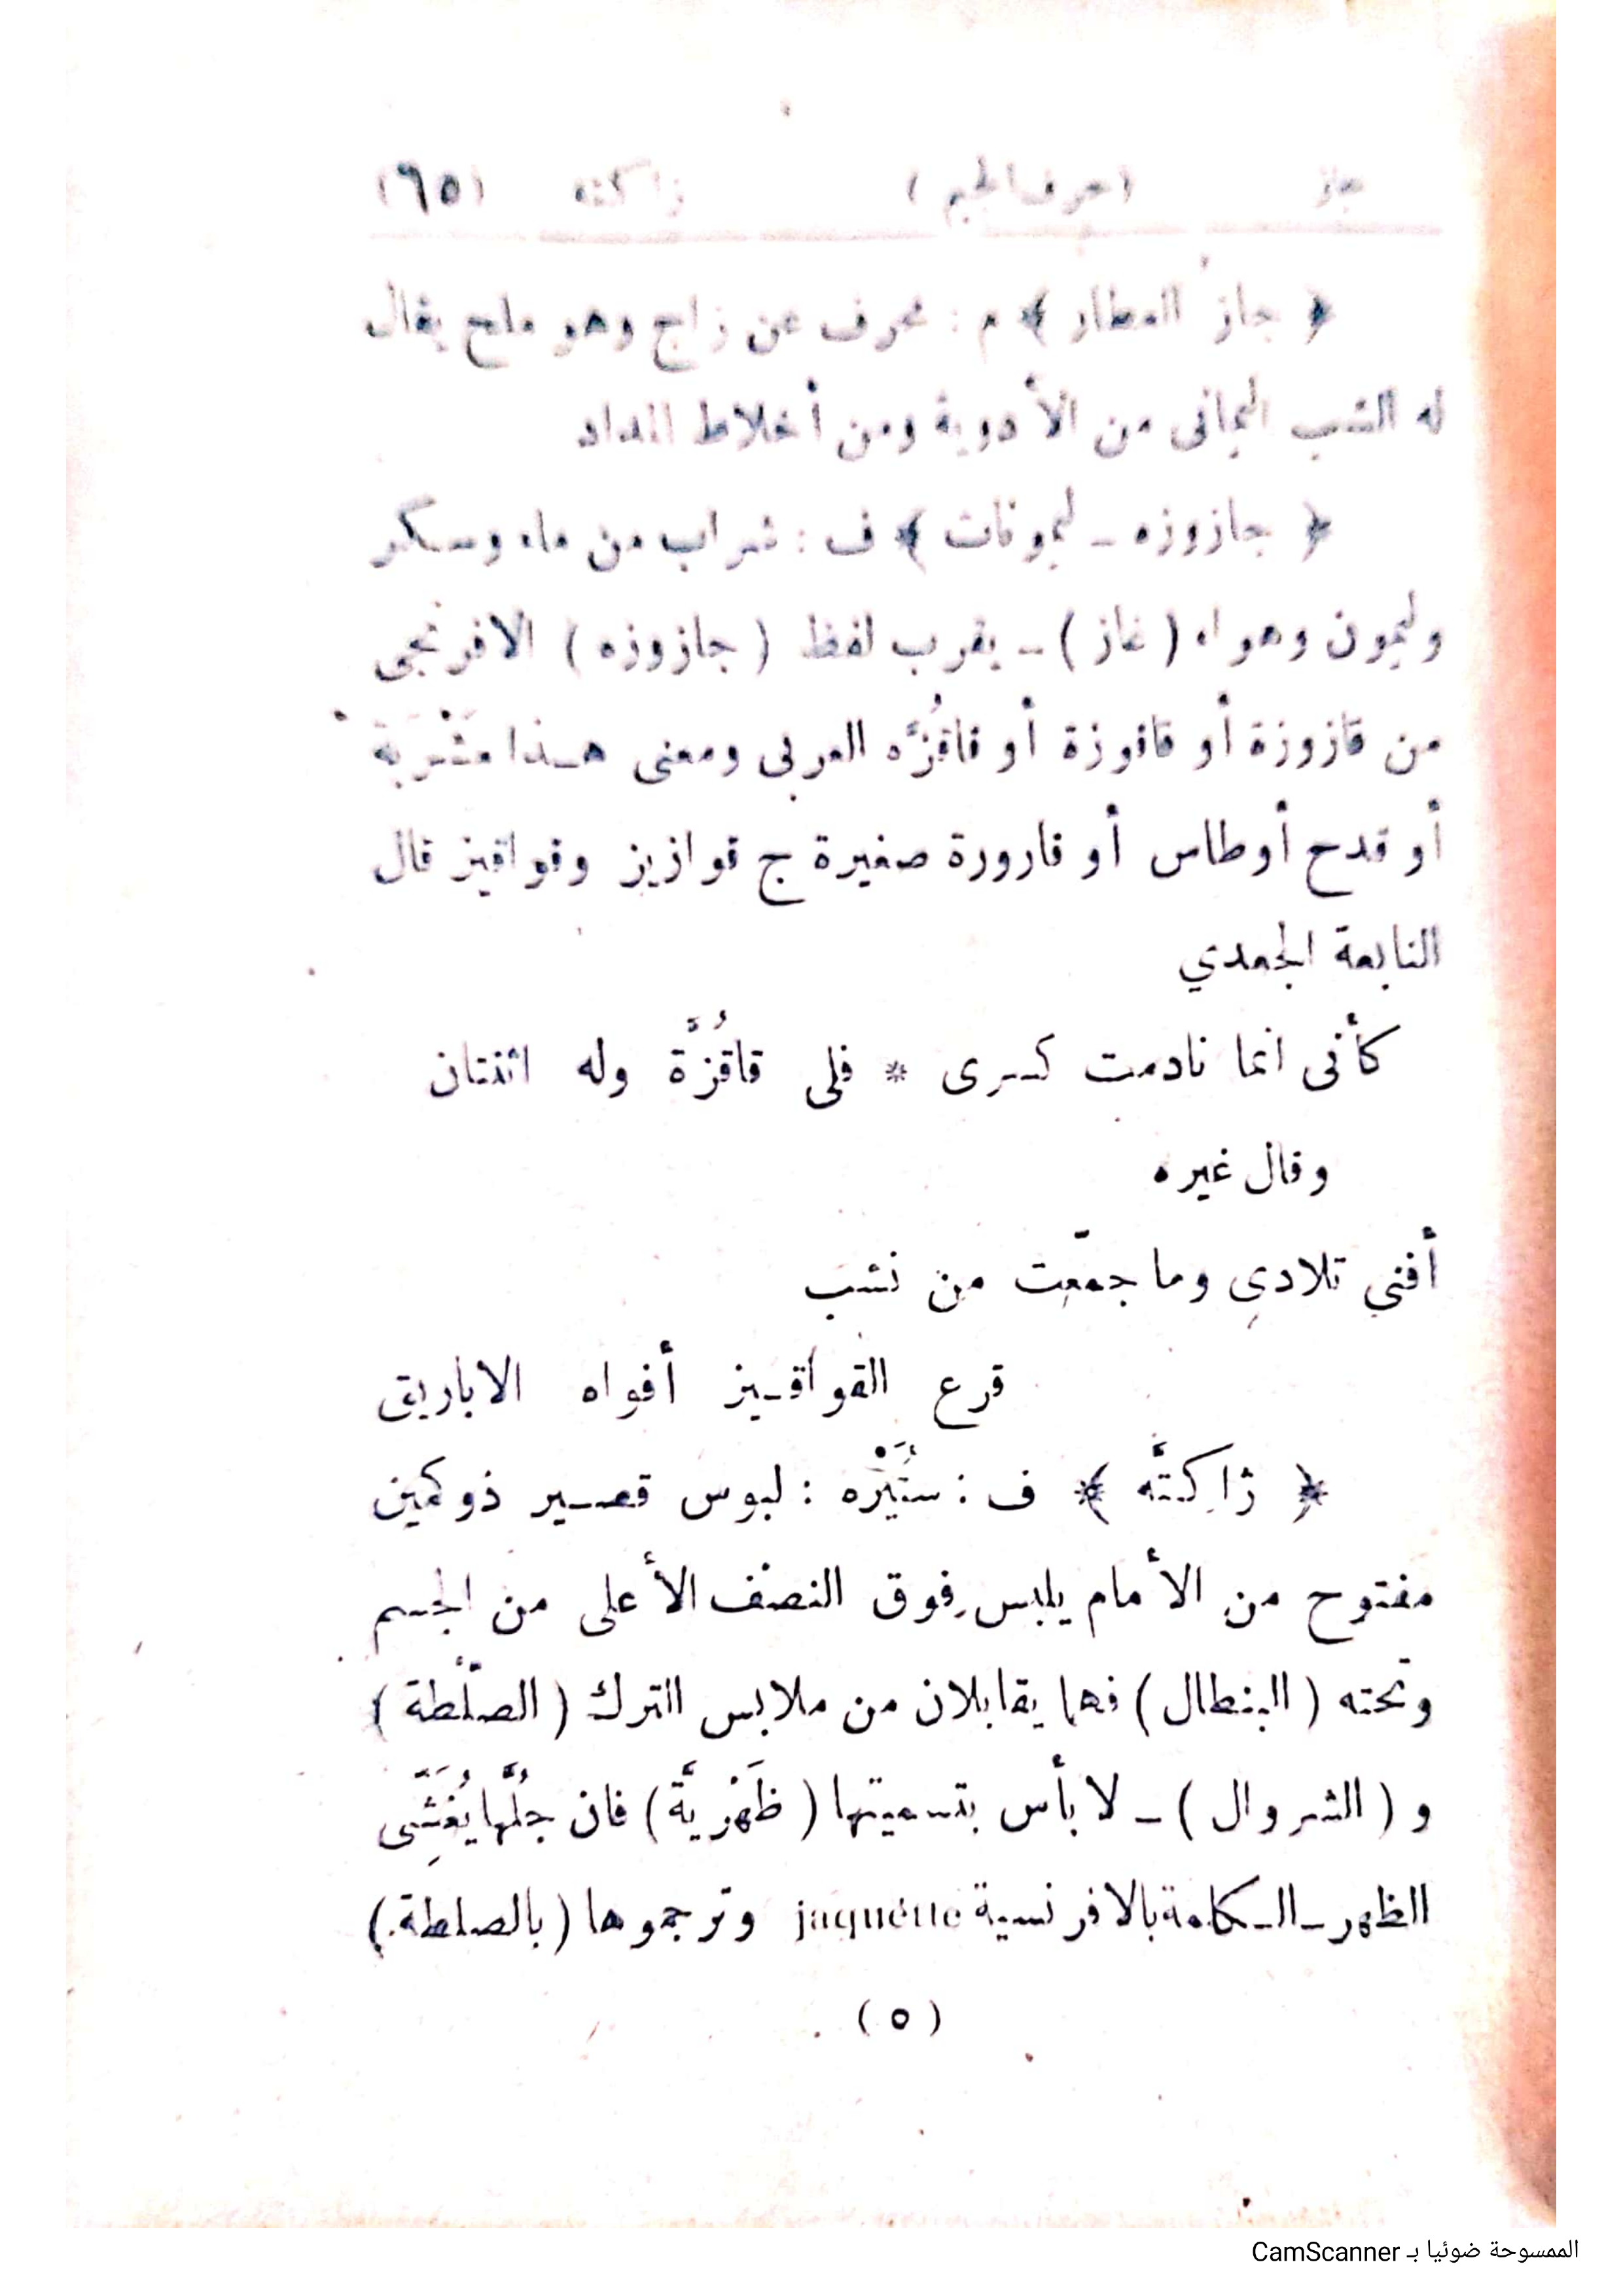 جاز (حرف الجيم) ژاكته (٦٥)
﴿ جاز العطار ﴾ م : محرف عن زاج وهو ملح يقال
له الشب اليمانى من الأدوية ومن أخلاط المداد
﴿ جازوزه ـ ليمونات ﴾ ف : شراب من ماء وسكر
وليمون وهواء ( غاز ) ـ يقرب لفظ ( جازوزه ) الافرنجى
من قازوزة أو قاقوزة أو قاقُزَّه العربى ومعنى هـذا مَشْرَبَة
أو قدح أوطاس أو قارورة صغيرة ج قوازيز وقواقيز قال
النابعة الجعدي
كأنى انما نادمت كسرى * فلى قاقُزَّة وله اثنتان
وقال غيره
أفني تلادي وما جمّعت من نشب
قرع القواقـيز أفواه الاباريق
﴿ ژاكِتَّه ﴾ ف : سُتَيْرَه : لبوس قصـير ذو كمين
مفتوح من الأمام يلبس فوق النصف الأعلى من الجسم
وتحته ( البنطال ) فهما يقابلان من ملابس الترك ( الصلْطة )
و ( الشروال ) ـ لا بأس بتسميتها ( ظَهْرِيَّة ) فان جُلَّها يُغَشِّى
الظهر ـ الـكلمة بالافرنسية jaquette وترجموها ( بالصلطة )
( ٥ )
الممسوحة ضوئيا بـ CamScanner